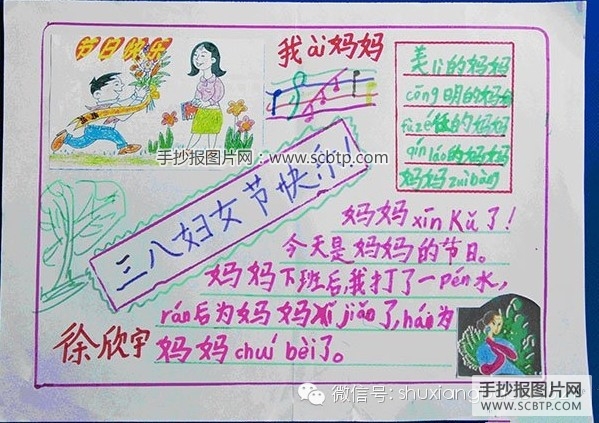 节日快乐
我ài妈妈
美lì的妈妈
cōng明的妈妈
fùzé任的妈妈
qín láo的妈妈
妈妈zuì bàng
手抄报图片网:www.scbtp.com
三八妇女节快乐!
妈妈xīn Kǔ了!
今天是妈妈的节日。
妈妈下班后,我打了一pén水,
rán后为妈妈xǐ jiǎo了,hái为
妈妈chuí bèi了。
徐欣宇
微信号: shuxiang
手抄报图片网
WWW.SCBTP.COM